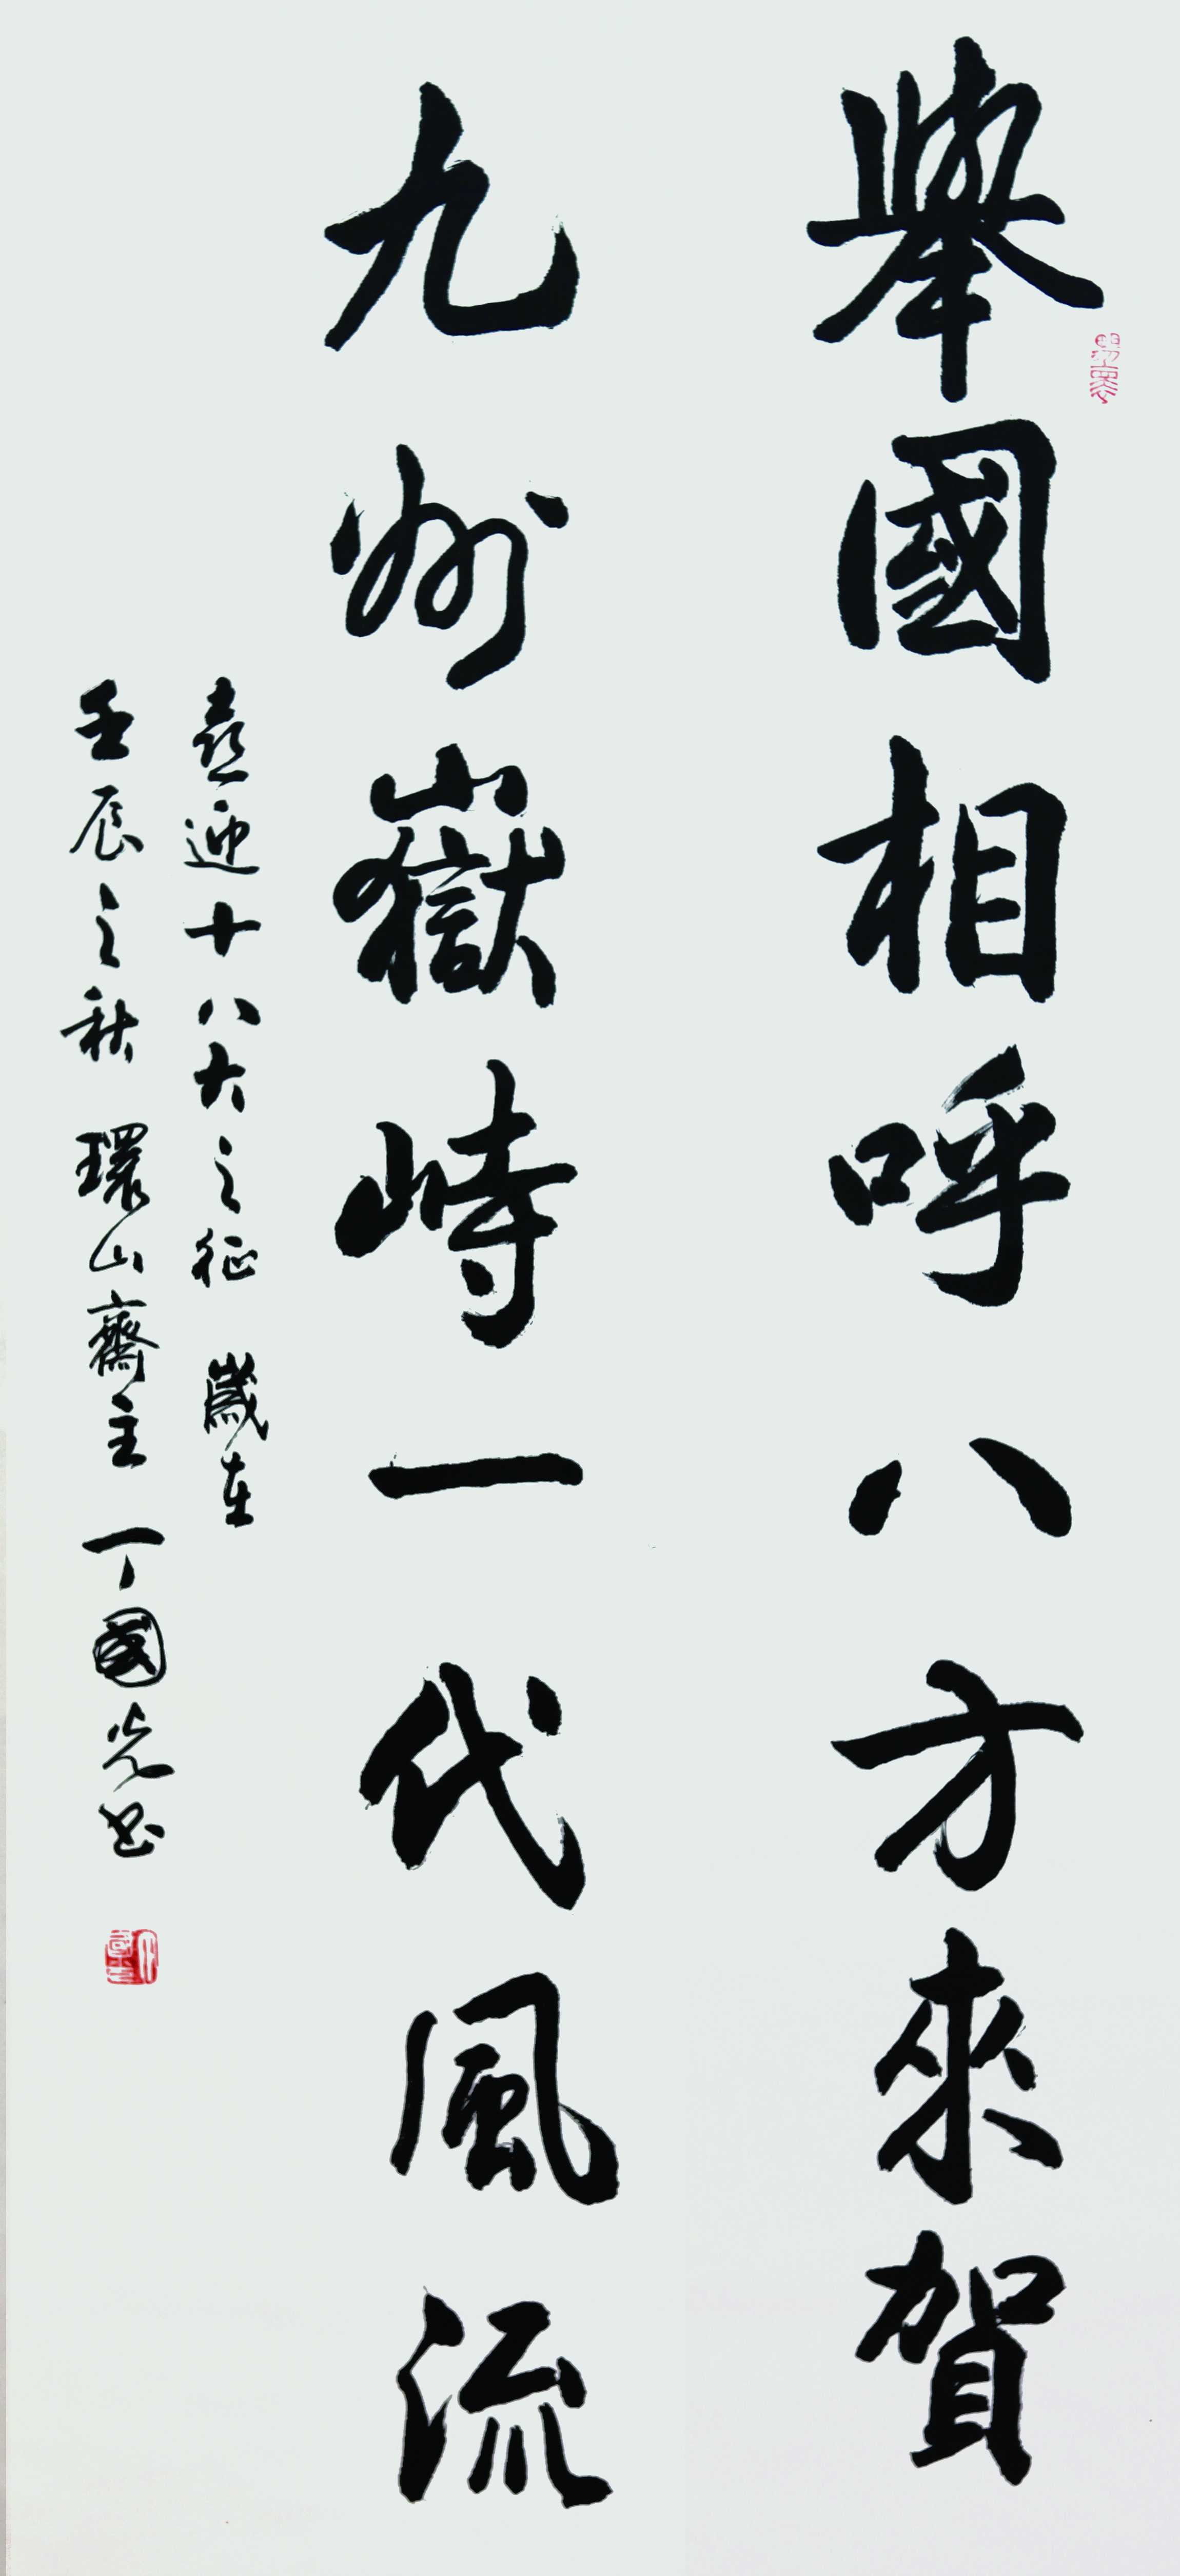 舉國相呼八方來賀
九州嶽峙一代風流
喜迎十八大之征 歲在
壬辰之秋 環山齋主 丁國光書